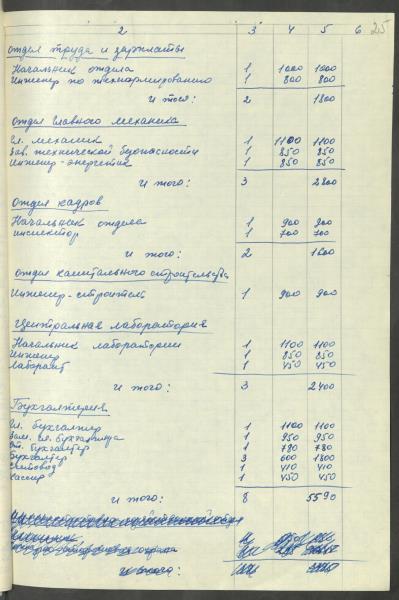 2 3 4 5 6 25
Отдел труда и зарплаты
Начальник отдела 1 1000 1000
Инженер по технормированию 1 800 800
Итого: 2 1800
Отдел главного механика
Гл. механик 1 1100 1100
Зав. технической безопасности 1 850 850
Инженер-энергетик 1 850 850
Итого: 3 2800
Отдел кадров
Начальник отдела 1 900 900
инспектор 1 700 700
Итого: 2 1600
Отдел капитального строительства
Инженер-строитель 1 900 900
Центральная лаборатория
Начальник лаборатории 1 1100 1100
Инженер 1 850 850
Лаборант 1 450 450
Итого: 3 2400
Бухгалтерия
Гл. бухгалтер 1 1100 1100
Зам. гл. бухгалтера 1 950 950
Ст. бухгалтер 1 780 780
Бухгалтер 3 600 1800
Счетовод 1 410 410
Кассир 1 450 450
Итого: 8 5590
охрана
Итого: